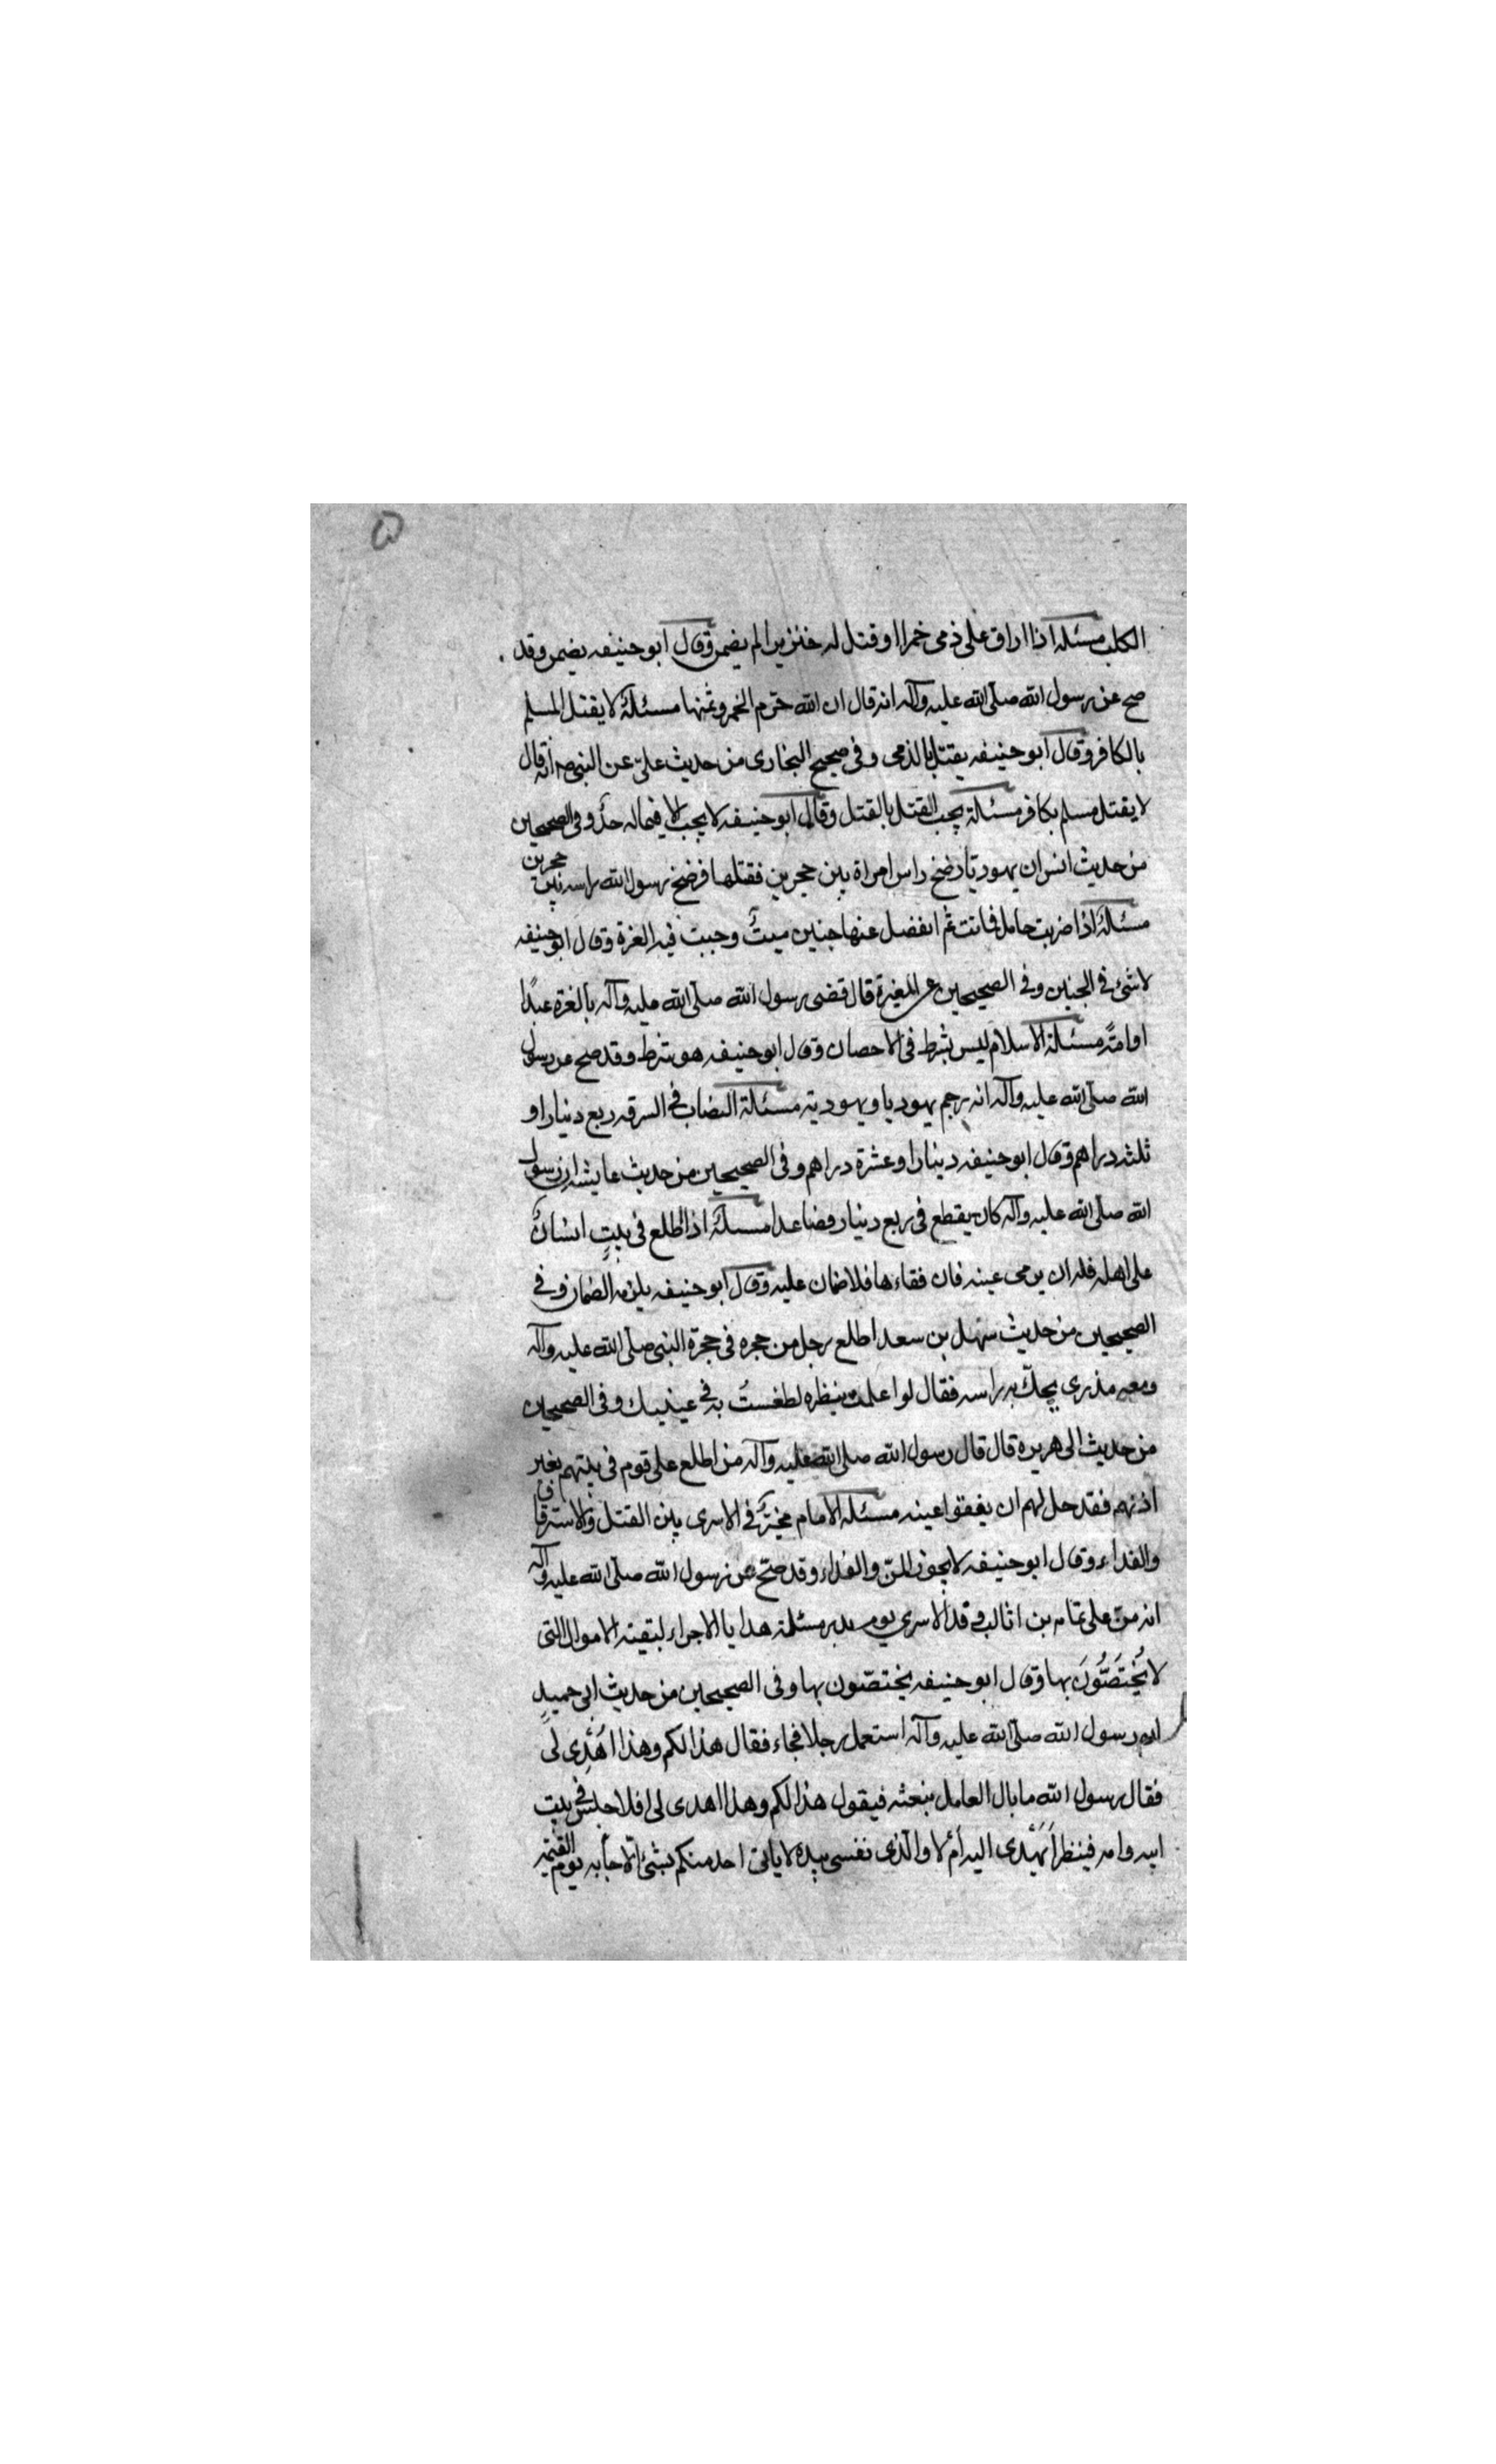 الكلب مسئلة اذا اراق على ذمى خمرا او قتل له خنزيرا لم يضمن وقال ابو حنيفه يضمن وقد
صح عن رسول الله صلى الله عليه وآله انه قال ان الله حرّم الخمر وثمنها مسئلة لا يقتل المسلم
بالكافر وقال ابو حنيفه يقتل بالذمى وفى صحيح البخارى من حديث علىّ عن النبى ص انه قال
لا يقتل مسلم بكافر مسئلة يجب القتل بالقتل وقال ابو حنيفه لا يجب الا فيما له حدٌّ وفى الصحيحين
من حديث انس ان يهوديا رضخ راس امراة بين حجرين فقتلها فرضخ رسول الله راسه بين حجرين
مسئلة اذا ضربت حامل فماتت ثم انفصل عنها جنين ميتٌ وجبت فيه الغرة وقال ابو حنيفه
لا شئ فى الجنين وفى الصحيحين عن المغيرة قال قضى رسول الله صلى الله عليه وآله بالغره عبدًا
او امةً مسئلة الاسلام ليس بشرط فى الاحصان وقال ابو حنيفه هو شرط وقد صح عن رسول
الله صلى الله عليه وآله انه رجم يهوديا ويهودية مسئلة النصاب فى السرقه ربع دينار او
ثلثه دراهم وقال ابو حنيفه دينار او عشرة دراهم وفى الصحيحين من حديث عايشه ان رسول
الله صلى الله عليه وآله كان يقطع فى ربع دينار فصاعدا مسئلة اذا اطلع فى بيتٍ انسانٌ
على اهله فله ان يرمى عينه فان فقاءها فلا ضمان عليه وقال ابو حنيفه يلزمه الضمان وفى
الصحيحين من حديث سهل بن سعد اطلع رجل من حجره فى حجرة النبى صلى الله عليه وآله
ومعه مذرى يحكّ به راسه فقال لو اعلمت ينظره لطغستُ به فى عينيك وفى الصحيحين
من حديث ابى هريره قال قال رسول الله صلى الله عليه وآله من اطلع على قوم فى بيتهم بغير
اذنهم فقد حل لهم ان يفقوا عينه مسئلة الامام مخيّرٌ فى الاسرى بين القتل والاسترقاق
والفداء وقال ابو حنيفه لا يجوز المنّ والفداء وقد صحّ عن رسول الله صلى الله عليه وآله
انه منّ على ثمامه بن اثال وفدا الاسرى يوم بدر مسئلة هدايا الامراء لبقية الاموال التى
لا يُختَصُّونَ بها وقال ابو حنيفه يختصّون بها وفى الصحيحين من حديث ابى حميدٍ
ان رسول الله صلى الله عليه وآله استعمل رجلا فجاء فقال هذا لكم وهذا اُهْدِى لى
فقال رسول الله ما بال العامل نبعثه فيقول هذا لكم وهذا اهدى لى افلا جلس فى بيت
ابيه وامه فينظر اَيُهْدى اليه اَمْ لا والّذى نفسى بيده لا ياتى احد منكم بشئ الّا جاء به يوم القيمة